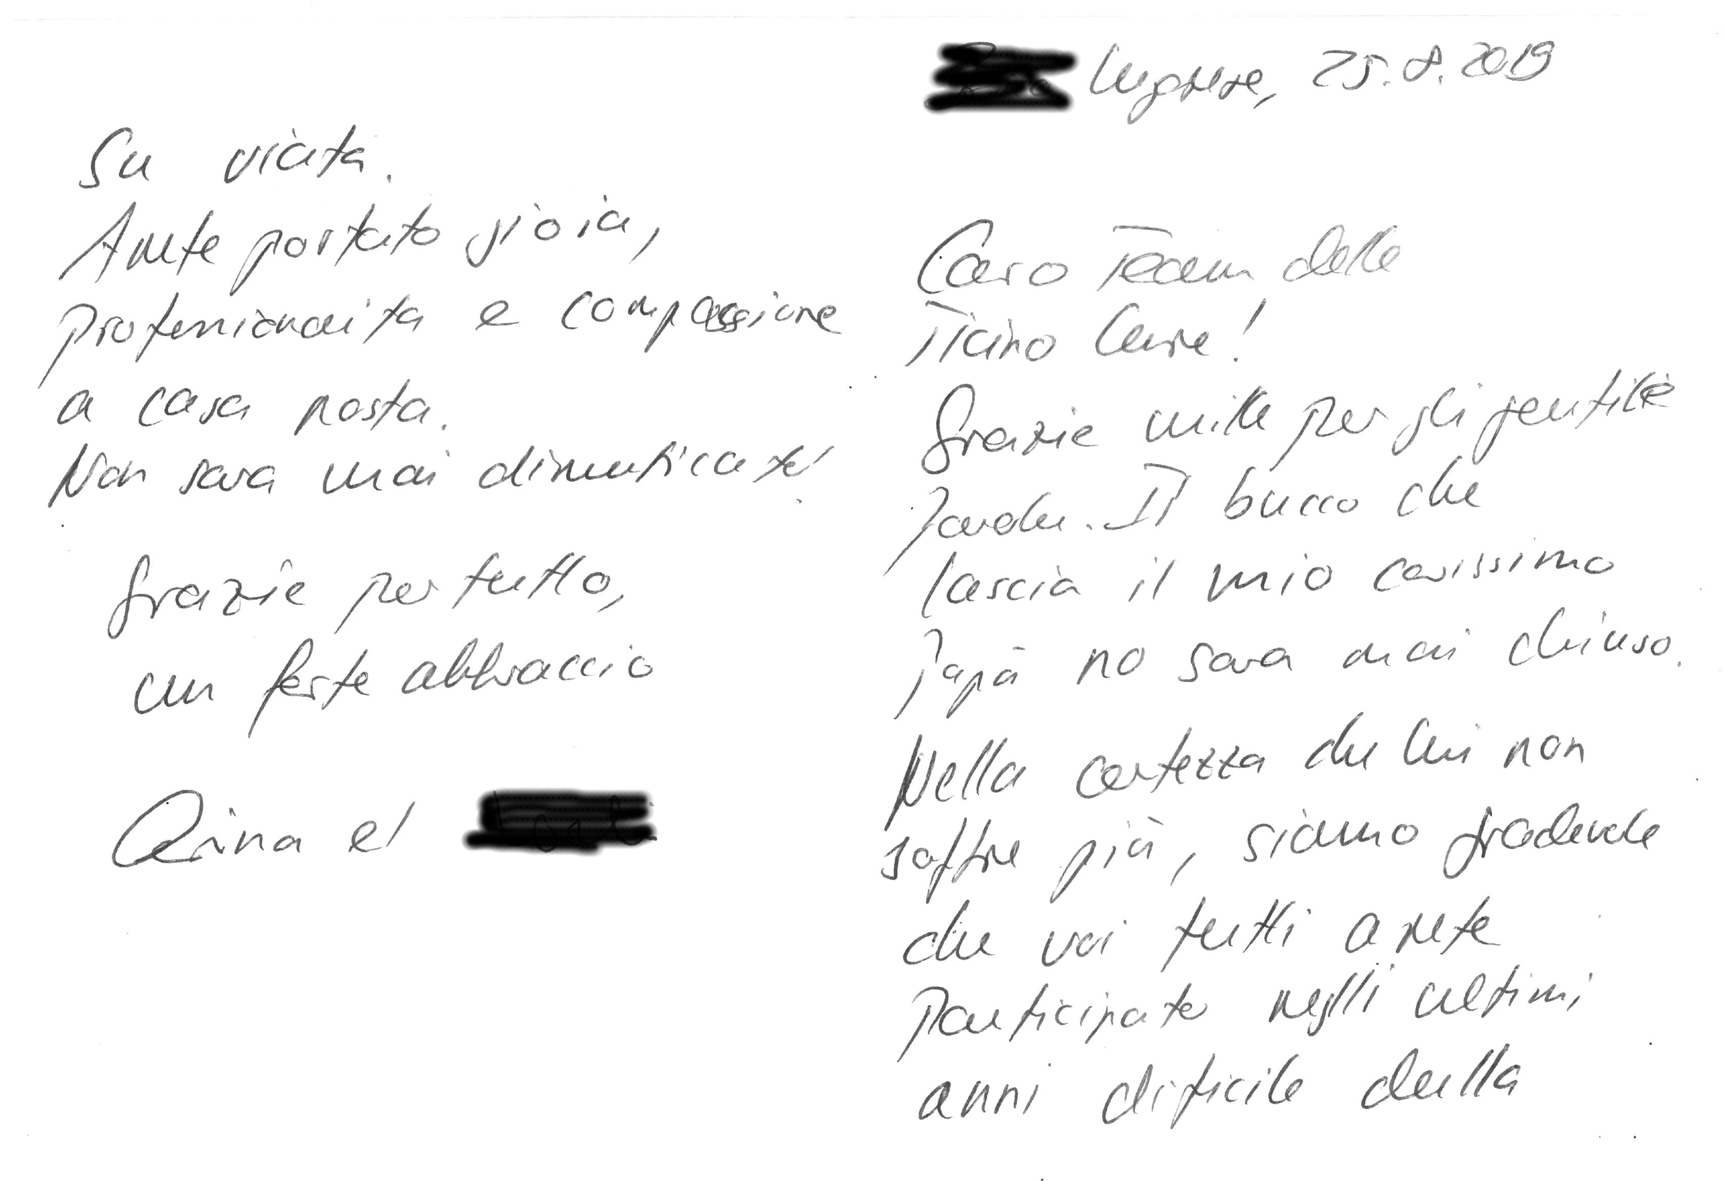 25.8.2019
Caro Team della
Ticino Cura!
Grazie mille per gli gentile
Parole. Il bucco che
lascia il mio carissimo
Papà no sara mai chiuso.
Nella certezza che lui non
soffre più, siamo gradevole
che voi tutti avete
participato neglli ultimi
anni dificile della
Su viata.
Avete portato gioia,
professionaita e compassione
a casa nosta.
Non sara mai dimenticato!
Grazie per tutto,
un forte abbraccio